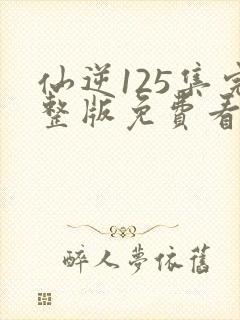 仙逆125集完
整版免費看
醉人夢依舊